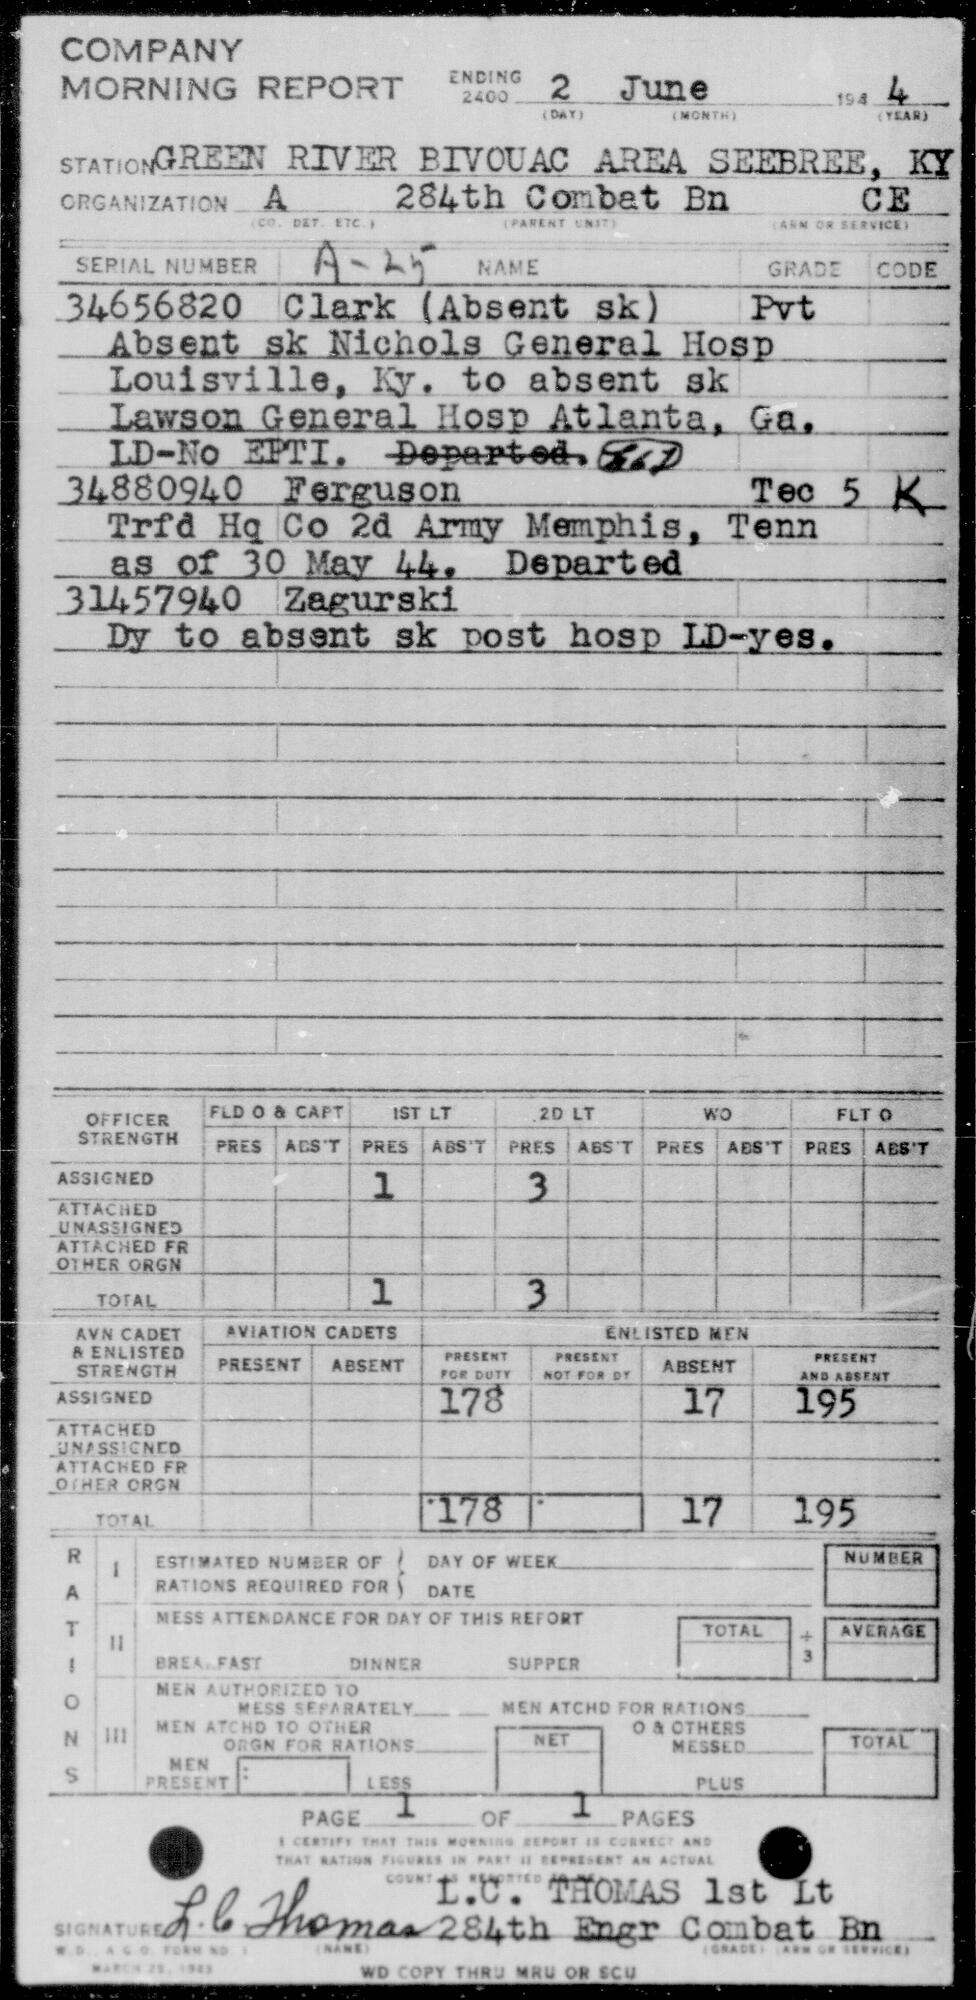 COMPANY
MORNING REPORT ENDING 2400 2 June 194 4
(DAY) (MONTH) (YEAR)
STATION GREEN RIVER BIVOUAC AREA SEEBREE, KY
ORGANIZATION A 284th Combat Bn CE
(CO. DET. ETC.) (PARENT UNIT) (ARM OR SERVICE)
SERIAL NUMBER A-25 NAME GRADE CODE
34656820 Clark (Absent sk) Pvt
Absent sk Nichols General Hosp
Louisville, Ky. to absent sk
Lawson General Hosp Atlanta, Ga.
LD-No EPTI. Departed.
34880940 Ferguson Tec 5 K
Trfd Hq Co 2d Army Memphis, Tenn
as of 30 May 44. Departed
31457940 Zagurski
Dy to absent sk post hosp LD-yes.
OFFICER STRENGTH FLD O & CAPT 1ST LT 2D LT WO FLT O
PRES ABS'T PRES ABS'T PRES ABS'T PRES ABS'T PRES ABS'T
ASSIGNED 1 3
ATTACHED UNASSIGNED
ATTACHED FR OTHER ORGN
TOTAL 1 3
AVN CADET & ENLISTED STRENGTH AVIATION CADETS ENLISTED MEN
PRESENT ABSENT PRESENT FOR DUTY PRESENT NOT FOR DY ABSENT PRESENT AND ABSENT
ASSIGNED 178 17 195
ATTACHED UNASSIGNED
ATTACHED FR OTHER ORGN
TOTAL 178 17 195
RATIONS
I ESTIMATED NUMBER OF RATIONS REQUIRED FOR DAY OF WEEK DATE NUMBER
II MESS ATTENDANCE FOR DAY OF THIS REPORT TOTAL ÷ 3 AVERAGE
BREAKFAST DINNER SUPPER
III MEN AUTHORIZED TO MESS SEPARATELY MEN ATCHD FOR RATIONS
MEN ATCHD TO OTHER ORGN FOR RATIONS NET O & OTHERS MESSED TOTAL
MEN PRESENT LESS PLUS
PAGE 1 OF 1 PAGES
I CERTIFY THAT THIS MORNING REPORT IS CORRECT AND
THAT RATION FIGURES IN PART II REPRESENT AN ACTUAL
COUNT AS REPORTED TO ME
L.C. THOMAS 1st Lt
SIGNATURE L. C. Thomas 284th Engr Combat Bn
W.D., A.G.O. FORM NO. 1 (NAME) (GRADE) (ARM OR SERVICE)
MARCH 25, 1943
WD COPY THRU MRU OR SCU